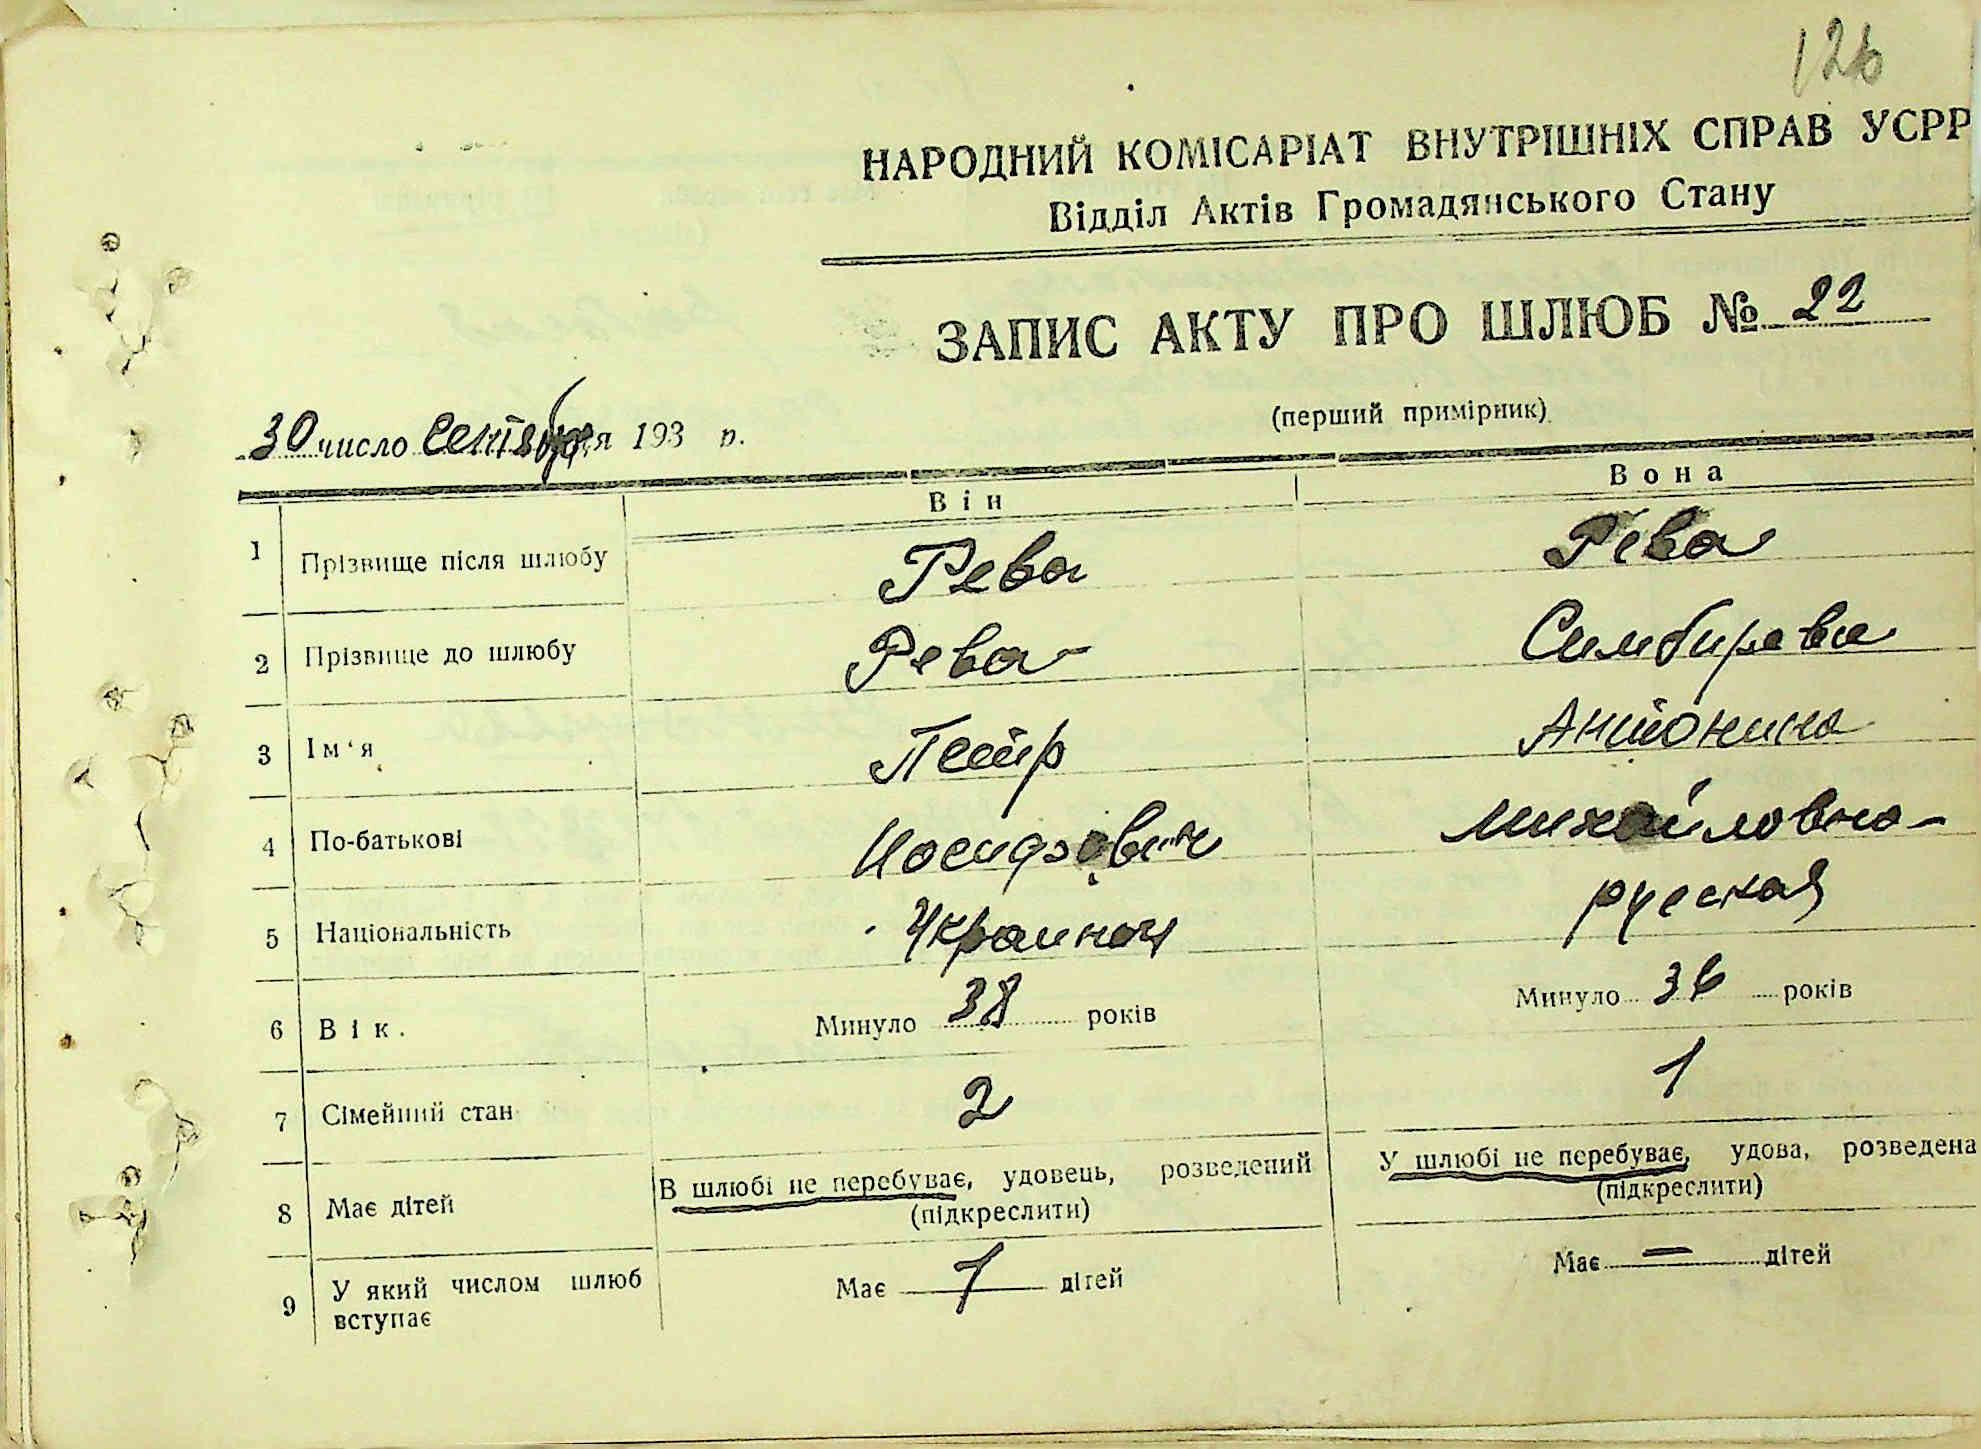 126
НАРОДНИЙ КОМІСАРІАТ ВНУТРІШНІХ СПРАВ УСРР
Відділ Актів Громадянського Стану
ЗАПИС АКТУ ПРО ШЛЮБ № 22
(перший примірник)
30 число сентября 193 р.
Він Вона
1 Прізвище після шлюбу Рева Рева
2 Прізвище до шлюбу Рева Симбирева
3 Ім'я Петр Антонина
4 По-батькові Иосифович Михайловна
5 Національність Украинец русская
6 Вік. Минуло 38 років Минуло 36 років
7 Сімейний стан 2 1
8 Має дітей В шлюбі не перебуває, удовець, розведений У шлюбі не перебуває, удова, розведена
(підкреслити) (підкреслити)
9 У який числом шлюб вступає Має 1 дітей Має — дітей